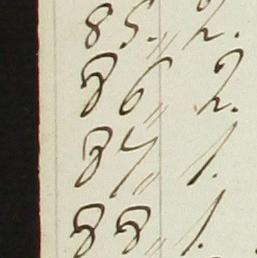 85. „ 2.
86 „ 2.
87 „ 1.
88 „ 1.